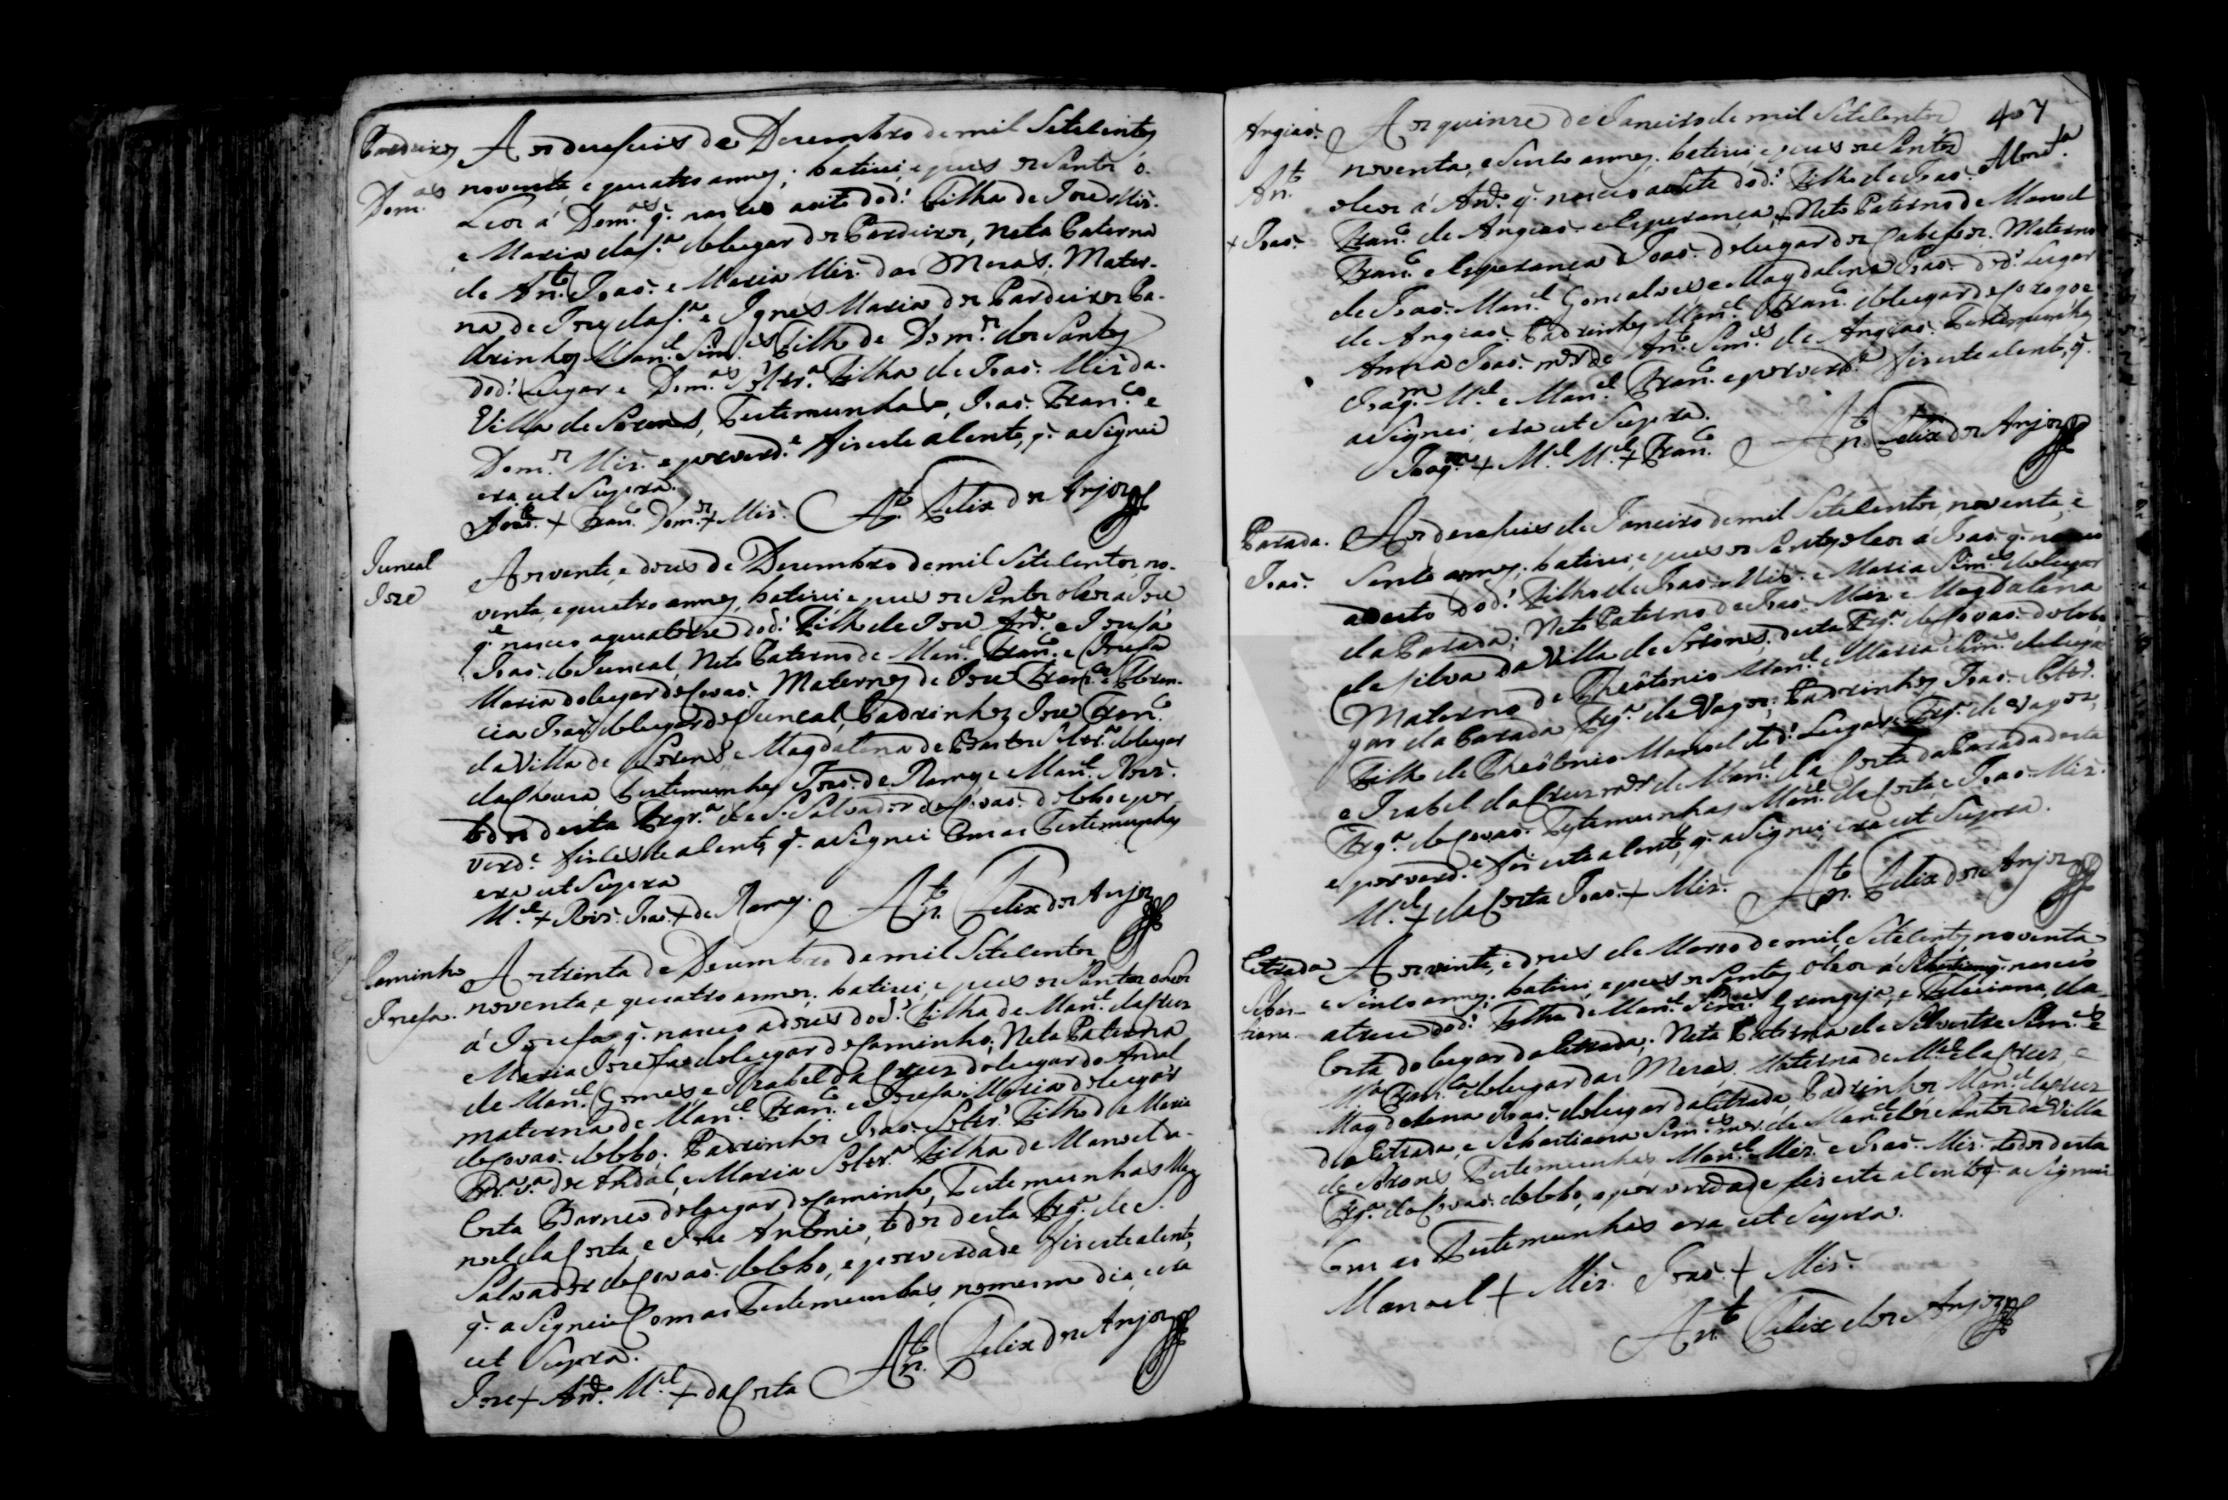 Pardeiros
Dom.as
Aos deseseis de Dezembro de mil Setecentos
noventa, e quatro annos; batizei, e pus os Santos O-
Leos á Dom.as q. nasceo aoito do d.º Filha de Jose Mis.
e Maria da S.a do lugar dos Pardeiros, Neta Paterna
de Ant.º Joaõ. e Maria Mis. das Mesas, Mater-
na de Jose da S.a e Ignes Maria dos Pardeiros Pa-
drinhos Man.el Sim.es Filho de Dom.os dos Santos
do d.º Lugar e Dom.as Soltr.a Filha de Joaõ. Mis da
Villa de Sorens, Testemunhas, Joaõ. Fran.co e
Dom.os Mis. e por verd.e fis este acento, q. asignei
era ut Supra.
Joaõ. + Fran.co Dom.os + Mis. Ant.º Felix dos Anjos
Juncal
Jose
Aos vente, e dous de Dezembro de mil Setecentos, no-
venta, e quatro annos, batizei e pus os Santos oleos a Jose
q. nasceo aquatorze do d.º Filho de Jose And.e e Josefa
Joaõ. do Juncal, Neto Paterno de Man.el Fran.co e Josefa
Maria do lugar de Covaõ. Maternos de Jose Fran.co e
cia Joaõ. do lugar do Juncal, Padrinhos Jose Fran.co
da Villa de Sorens e Magdalena de Bastos Soltr.a do lugar
da Testemunhas Joaõ. de Ramos e Man.el Rois.
todos desta Fregr.a de S. Salvador de Covaõ. do lobo e por
verd.e fis este acento, q. asignei Com as Testemunhas
era ut Supra
M.el + Rois. Joaõ. + de Ramos. Ant.º Felix dos Anjos
Caminho
Josefa.
Aos trinta de Dezembro de mil Setecentos
noventa, e quatro annos. batizei, e pus os Santos oleos
á Josefa q. nasceo adous do d.º Filha de Man.el da Crus
e Maria Josefa do lugar do Caminho, Neta Paterna
de Man.el Gomes, e Izabel da Crus do lugar do Andal
materna de Man.el Fran.co e Josefa Maria do lugar
de Covaõ. do lobo. Padrinhos Joaõ. Soltr.º Filho de Maria
do Andal, e Maria Soltr.a Filha de Manoel da
Costa do lugar do Caminho, Testemunhas Ma
noel da Costa, e Jose Antonio, todos desta Frg.a de S.
Salvador de Covaõ. do lobo, e por verdade fis este acento,
q. asignei Com as Testemunhas, no mesmo dia, era
ut Supra.
Jose + Ant.º M.el + da Costa Ant.º Felix dos Anjos
407
Angiaõ.
Ant.º
+ Joaõ.
Aos quinze de Janeiro de mil Setecentos
noventa, e Sinco annos. batizei, e pus os Santos
oleos á Ant.º q. nasceo aSete do d.º Filho de Joaõ.
Fran.co de Angiaõ. e Esperança, + Neto Paterno de Manoel
Fran.co e Esperança Joaõ. do lugar dos Cabesos. Materno
de Joaõ. Man.el Goncalves e Magdalena Joaõ. do d.º Lugar
de Angiaõ. Padrinhos Man.el Fran.co do lugar de
Anna Joaõ. m.er de Ant.º Sim.es de Angiaõ. Testemunhas
Joaq.m M.el e Man.el Fran.co e por verd.e fis este acento, q.
asignei, era ut Supra.
Joaq.m + M.el M.el + Fran.co Ant.º Felix dos Anjos
Parada.
Joaõ.
Aos deseseis de Janeiro de mil Setecentos, noventa, e
Sinco annos, batizei, e pus os Santos oleos á Joaõ. q. nasceo
aoito do d.º Filho de Joaõ. Mis. e Maria Sim.es do lugar
da Parada; Neto Paterno de Joaõ. Mis. e Magdalena
da Silva da Villa de Sorens, desta Frg.a de Covaõ. do lobo
Materno de Theôtonio Man.el e Maria Sim.es do lu-
gar da Parada Frg.a de Vagos; Padrinhos Joaõ. Soltr.º
Filho de Theôtonio Manoel do d.º Lugar, e Frg.a de Vagos,
e Izabel da Crus m.er de Man.el da Costa da Parada desta
Frg.a de Covaõ. Testemunhas Man.el da Costa, e Joaõ. Mis.
e por verd.e fis este acento, q. asignei, era ut Supra.
M.el + da Costa Joaõ. + Mis. Ant.º Felix dos Anjos
Estrada
Sebas-
tiana.
Aos vinte, e dous de Marso de mil Setecentos, noventa
e Sinco annos; batizei, e pus os Santos Oleos á Sebastiana q. nasceo
atreze do d.º Filha de Man.el Sim.es e Feliciana, da
Costa do lugar da Estrada; Neta Paterna de Silvestre Sim.es e
M.a Fran.ca do lugar das Mesas, Materna de M.el da Crus e
Magdalena Joaõ. do lugar da Estrada, Padrinhos Man.el da Crus
da Estrada, e Sebastiana Sim.es m.er de Man.el dos Santos da Villa
de Sorens Testemunhas Man.el Mis. e Joaõ. Mis. todos desta
Frg.a de Covaõ. do lobo, e por verdade fis este acento q. asignei
Com as Testemunhas era ut Supra.
Manoel + Mis. Joaõ. + Mis.
Ant.º Felix dos Anjos